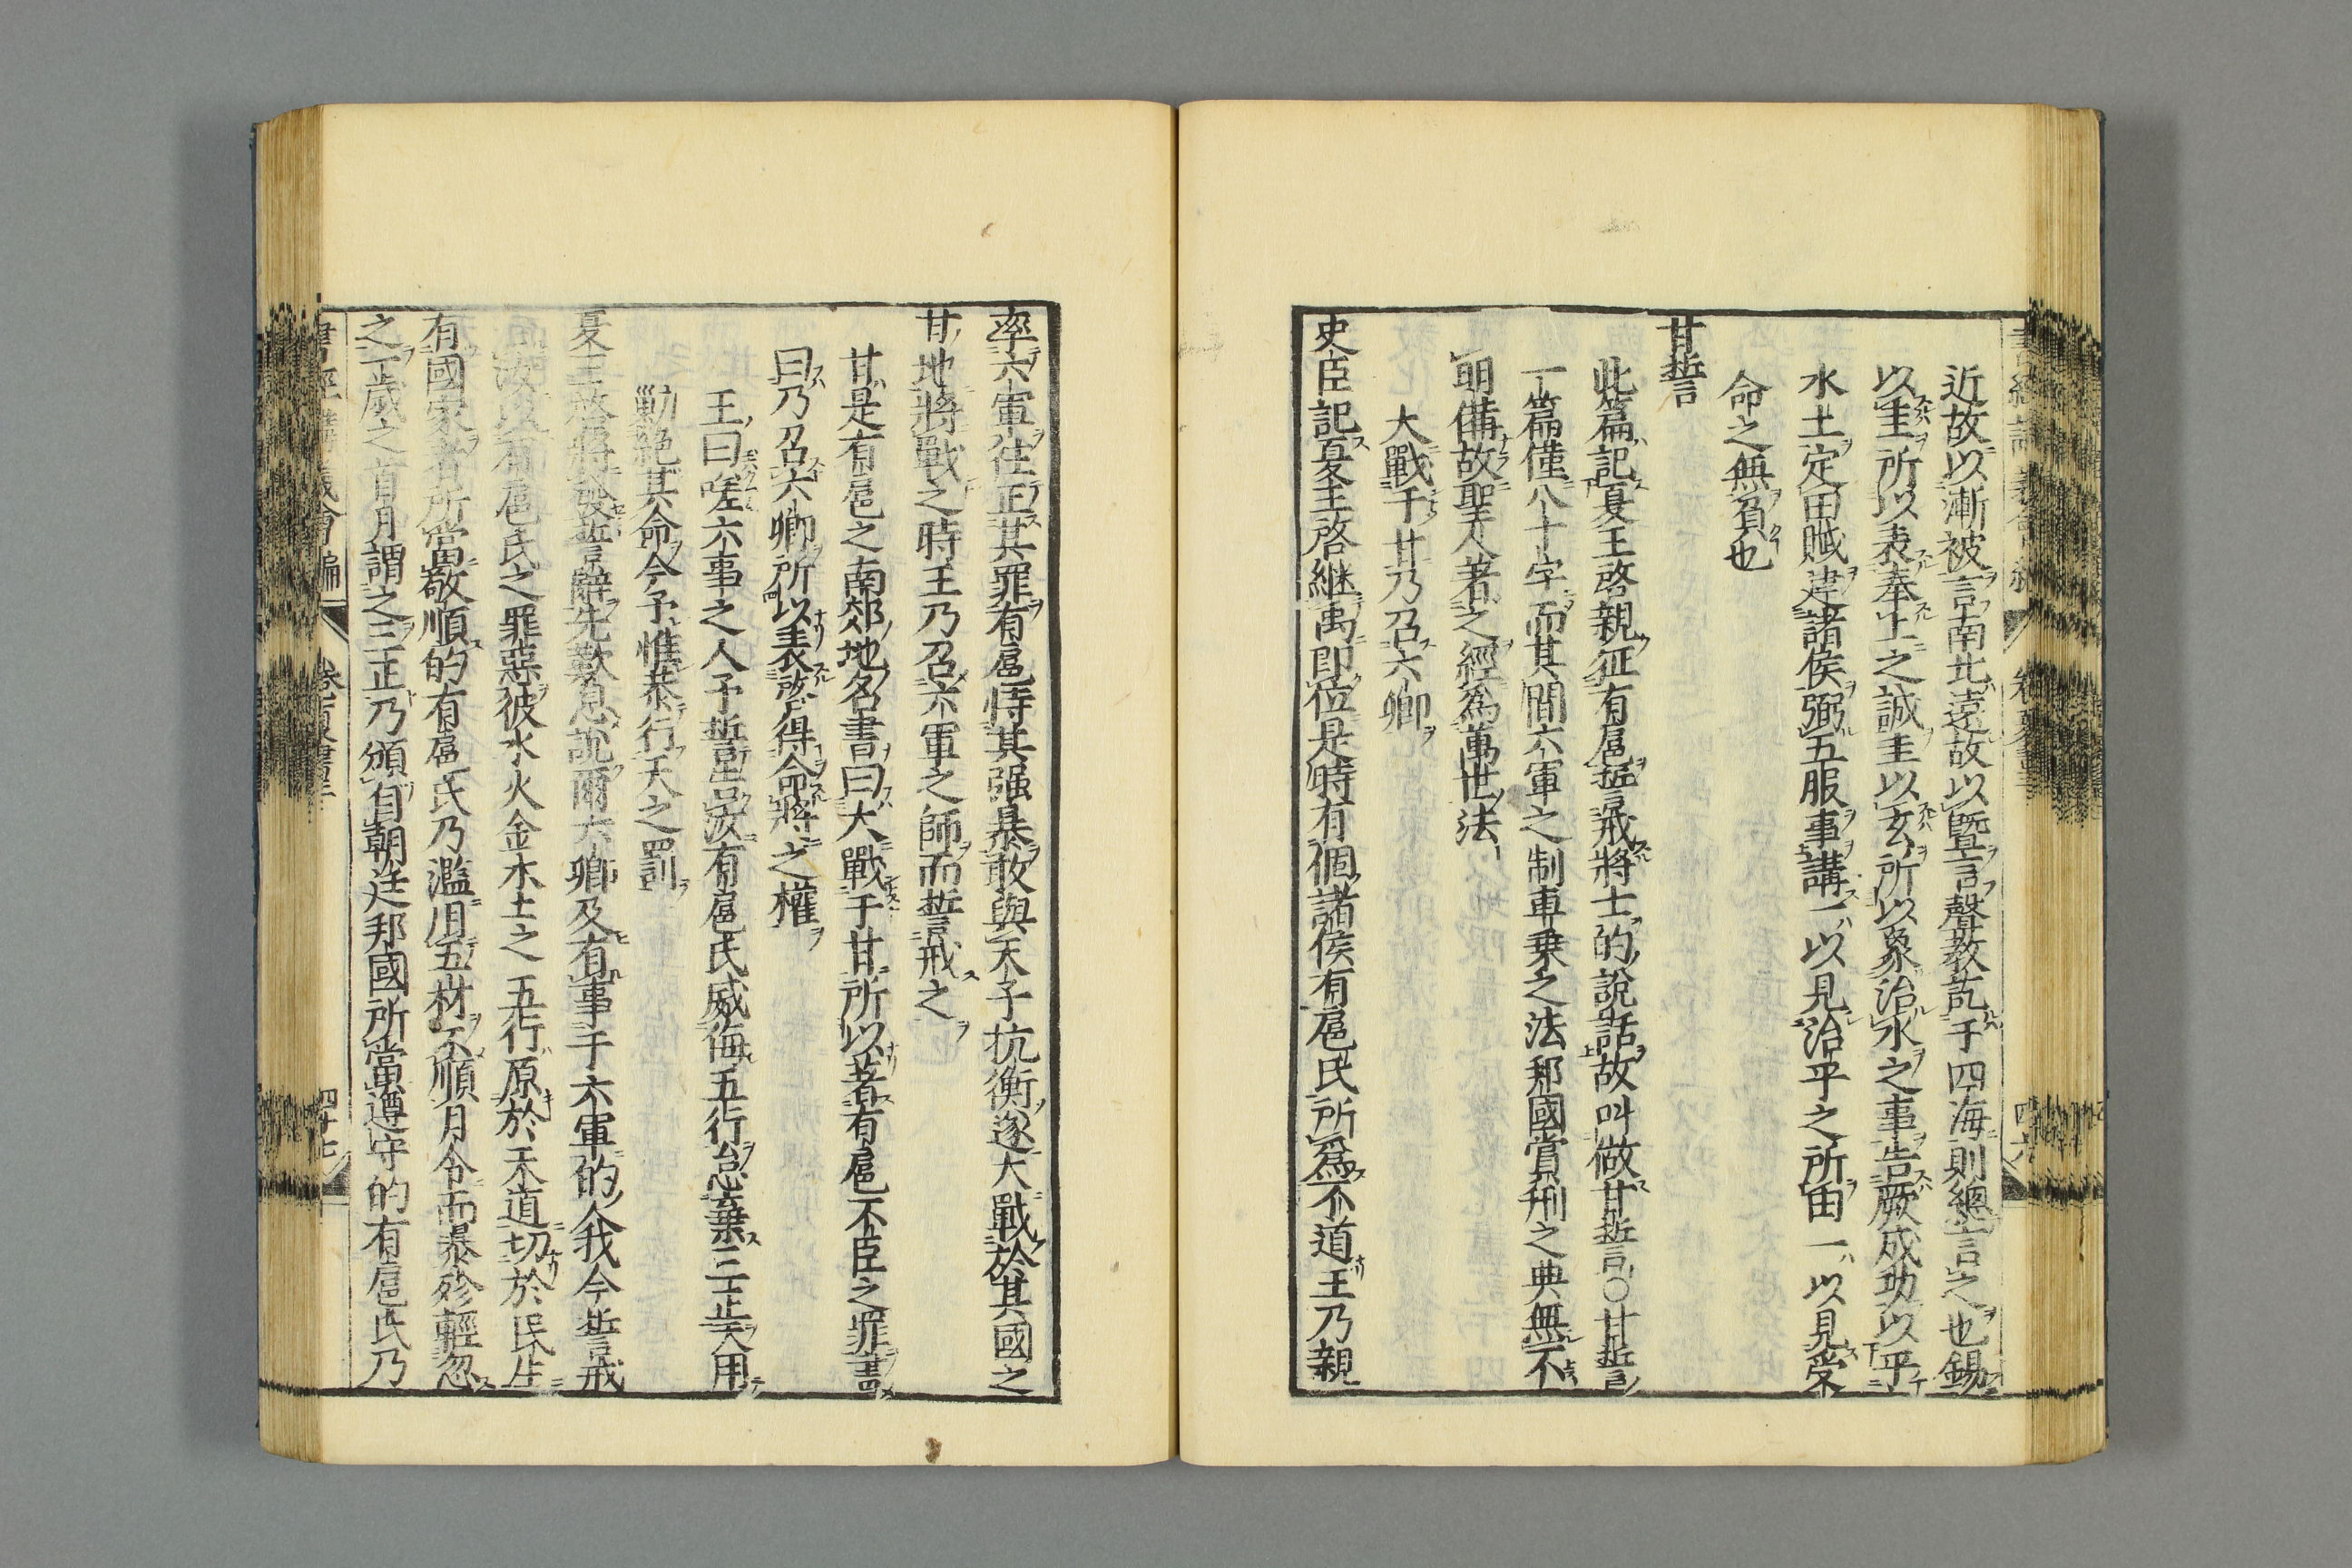 近故以漸被言南北遠故以曁言聲教訖于四海則總言之也錫
以圭所以表奉上之誠圭以玄所以象治水之事告厥成功以平
水土定田賦建諸侯弼五服事講一以見治平之所由一以見受
命之無負也
甘誓
此篇記夏王啓親征有扈誓戒將士的說話故叫做甘誓○甘誓
一篇僅八十字而其間六軍之制車乗之法邦國賞刑之典無不
明備故聖人著之經爲萬世法
大戰于甘乃召六卿
史臣記夏王啓継禹即位是時有個諸侯有扈氏所爲不道王乃親
率六軍往正其罪有扈恃其强暴敢與天子抗衡遂大戰於其國之
甘地將戰之時王乃召六軍之師而誓戒之
甘是有扈之南郊地名書曰大戰于甘所以著有扈不臣之罪書
曰乃召六卿所以表啓得命將之權
王曰嗟六事之人予誓告汝有扈氏威侮五行怠棄三正天用
勦絶其命今予惟恭行天之罰
夏王啓將發誓辭先歎息說爾六卿及有事于六軍的人我今誓戒
告汝以有扈氏之罪惡彼水火金木土之五行原於天道切於民生
有國家者所當敬順的有扈氏乃濫用五材不順月令而暴殄輕忽
之一歲之首月謂之三正乃頒自朝廷邦國所當遵守的有扈氏乃